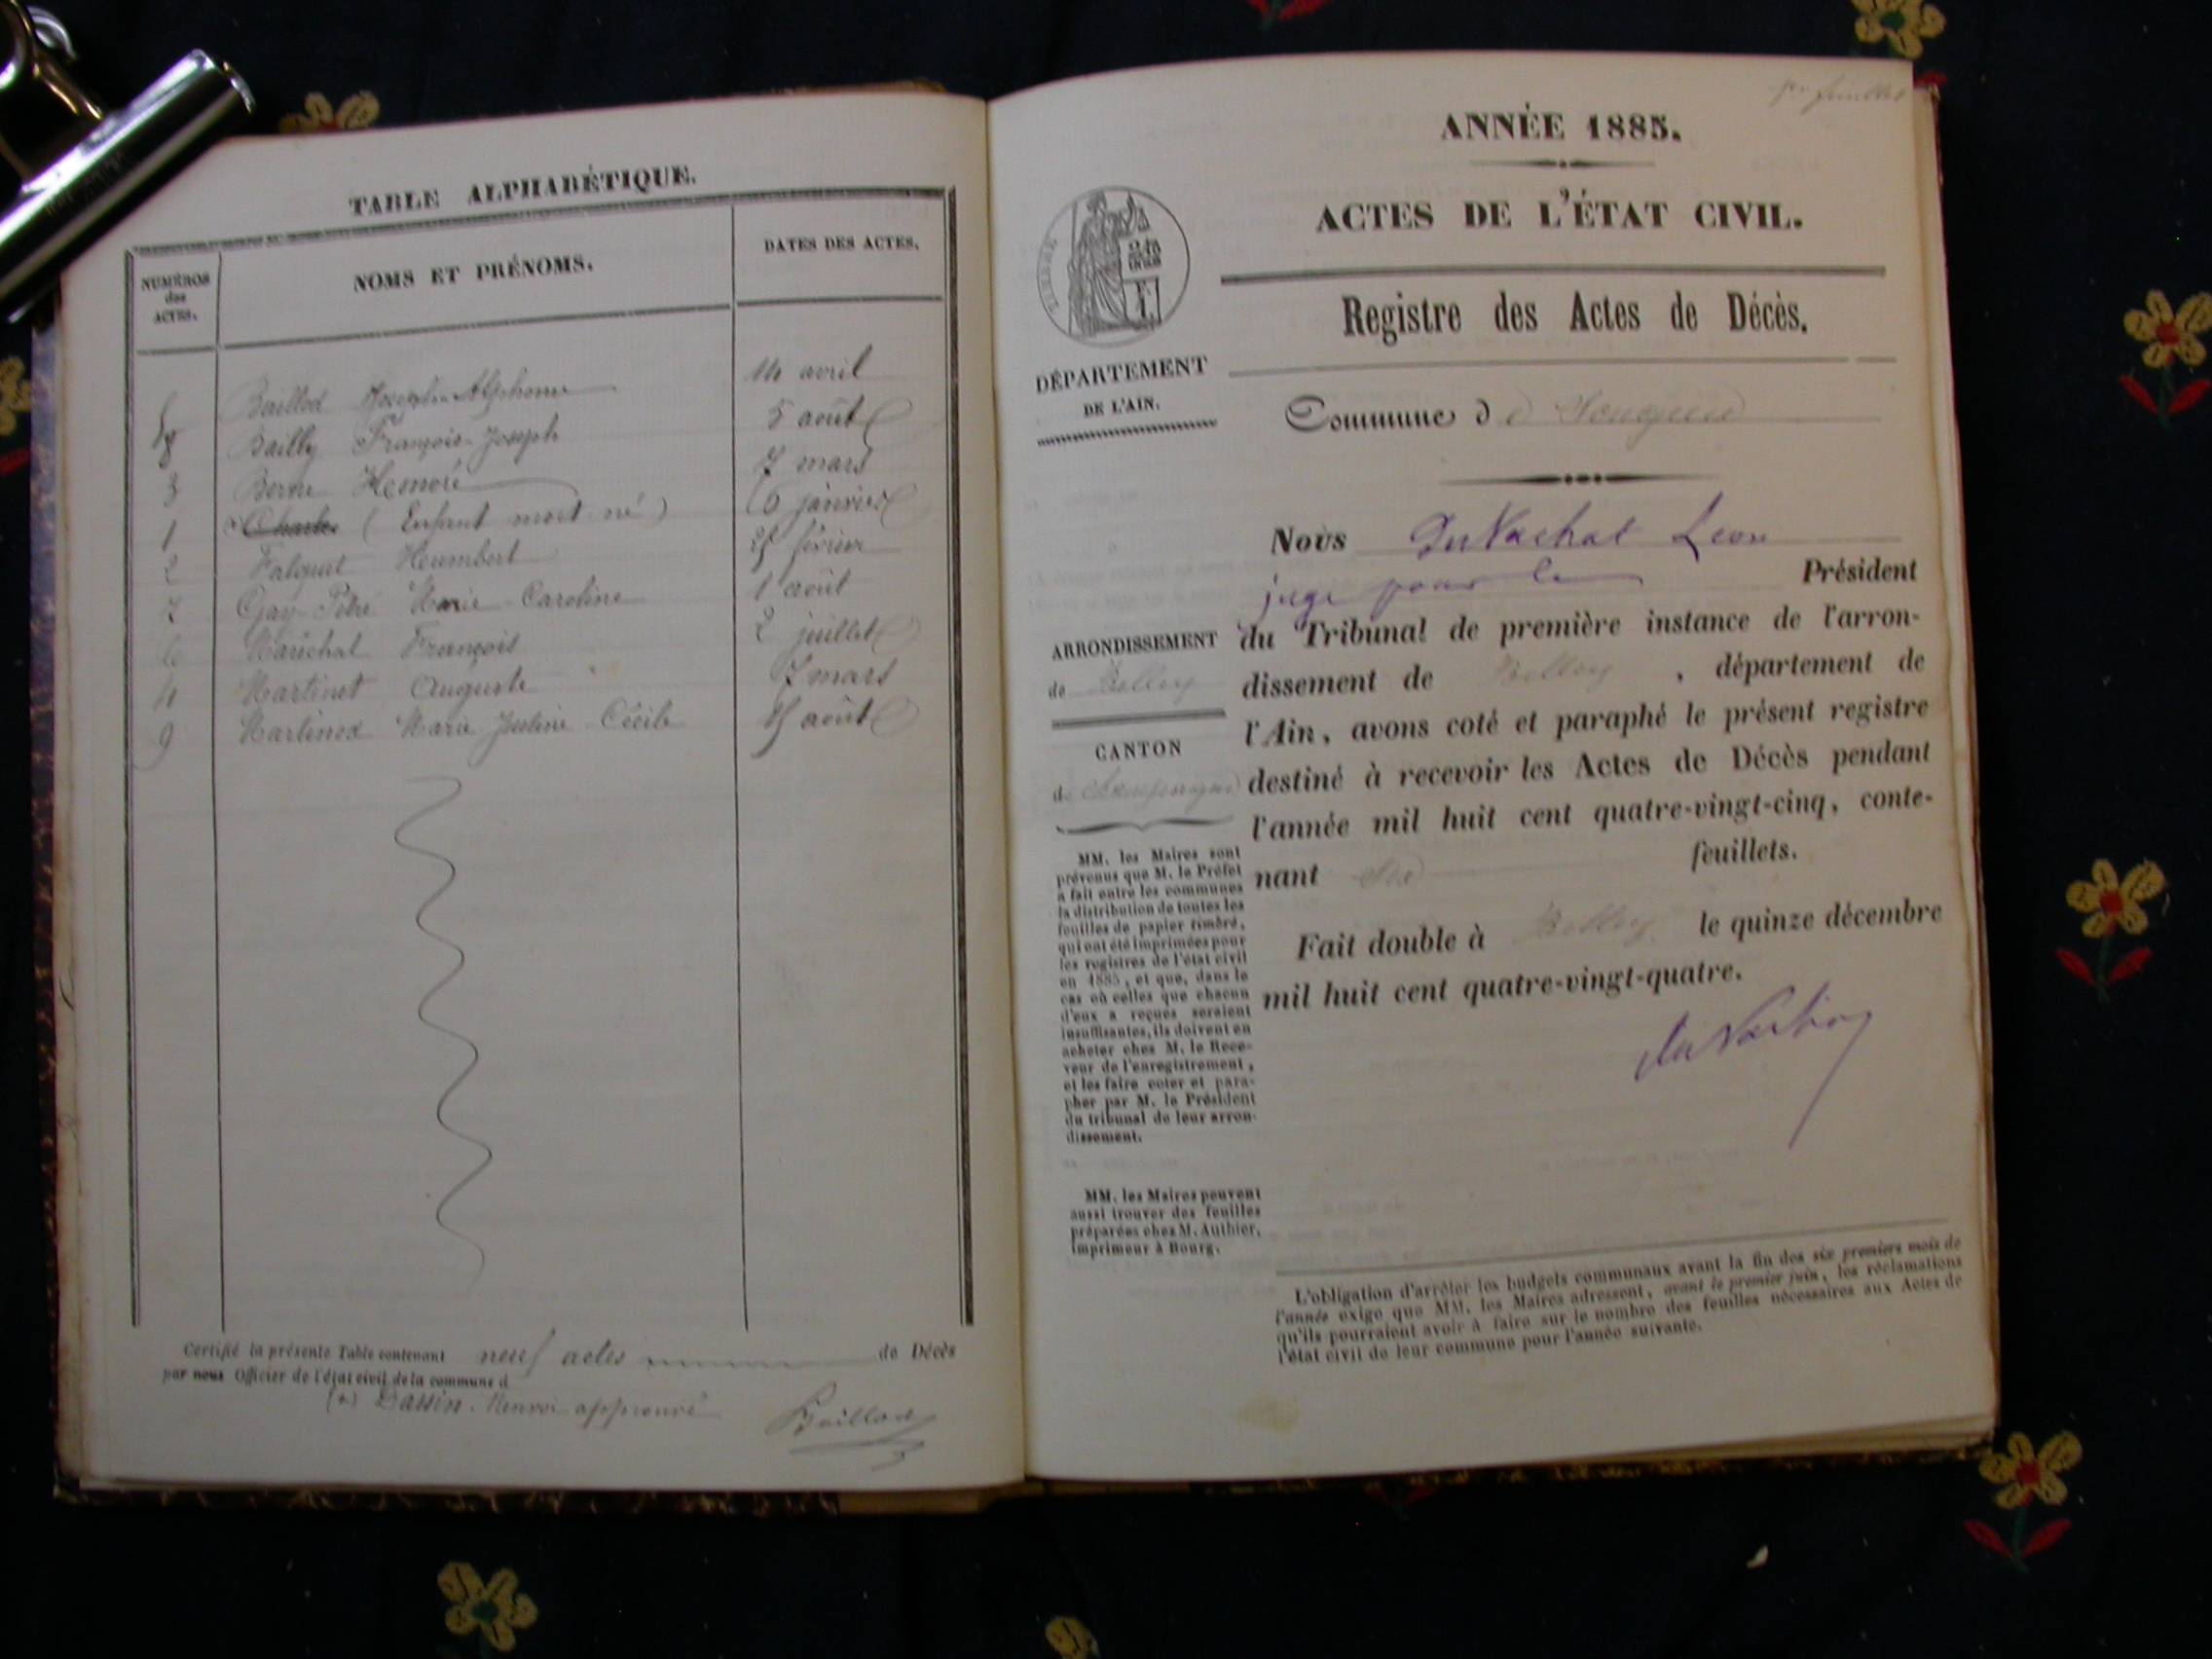 TABLE ALPHABÉTIQUE.
NUMÉROS
des
ACTES.
NOMS ET PRÉNOMS.
DATES DES ACTES.
Baillod Joseph-Alphonse 14 avril
8 Bailly François-Joseph 5 août
3 Berne Honoré 7 mars
1 (Enfant mort-né) 6 janvier
2 Falquet Humbert février
7 Gay Marie-Caroline 1 août
6 Maréchal François 2 juillet
4 Martinet Auguste 7 mars
9 Martinod Marie-Justine-Cécile 15 août
Certifié la présente Table contenant neuf actes de Décès
par nous Officier de l'état civil de la commune d
Renvoi approuvé
Baillod
1er feuillet
ANNÉE 1885.
ACTES DE L'ÉTAT CIVIL.
Registre des Actes de Décès.
DÉPARTEMENT
DE L'AIN.
Commune d
Nous Du Vachat Leon
juge pour le Président
du Tribunal de première instance de l'arron-
dissement de Belley, département de
l'Ain, avons coté et paraphé le présent registre
destiné à recevoir les Actes de Décès pendant
l'année mil huit cent quatre-vingt-cinq, conte-
nant six feuillets.
Fait double à Belley le quinze décembre
mil huit cent quatre-vingt-quatre.
du Vachat
ARRONDISSEMENT
de Belley
CANTON
de Champagne
MM. les Maires sont
prévenus que M. le Préfet
a fait entre les communes
la distribution de toutes les
feuilles de papier timbré,
qui ont été imprimées pour
les registres de l'état civil
en 1885, et que, dans le
cas où celles que chacun
d'eux a reçues seraient
insuffisantes, ils doivent en
acheter chez M. le Rece-
veur de l'enregistrement,
et les faire coter et para-
pher par M. le Président
du tribunal de leur arron-
dissement.
MM. les Maires peuvent
aussi trouver des feuilles
préparées chez M. Authier,
imprimeur à Bourg.
L'obligation d'arrêter les budgets communaux avant la fin des six premiers mois de
l'année exige que MM. les Maires adressent, avant le premier juin, les réclamations
qu'ils pourraient avoir à faire sur le nombre des feuilles nécessaires aux Actes de
l'état civil de leur commune pour l'année suivante.